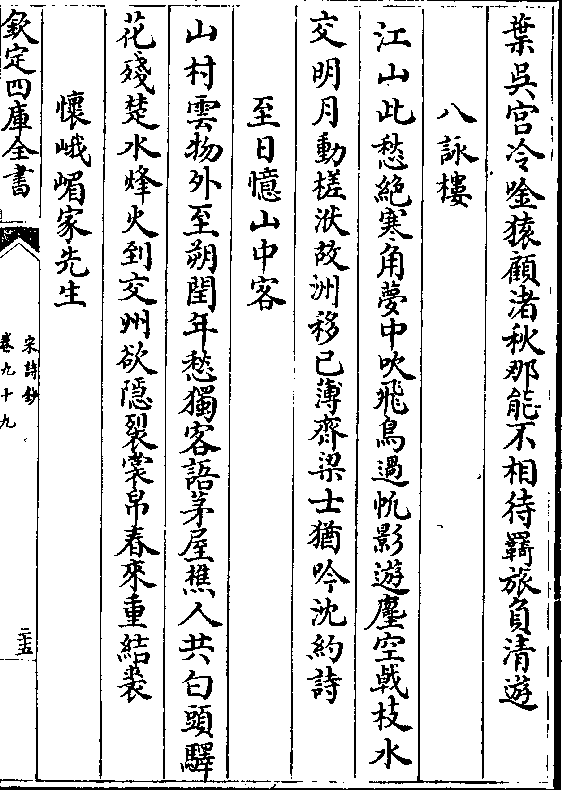 葉吳宮冷唫猿顧渚秋那能不相待羇旅負清遊
八詠樓
江山此愁絶寒角夢中吹飛鳥過帆影遊塵空戟枝水
交明月動槎洑故洲移已薄齊梁士猶吟沈約詩
至日憶山中客
山村雲物外至朔閏年愁獨客語茅屋樵人共白頭驛
花殘楚水烽火到交州欲隠裂裳帛春來重結裘
懷峨嵋家先生
欽定四庫全書
宋詩鈔
卷九十九
二十五